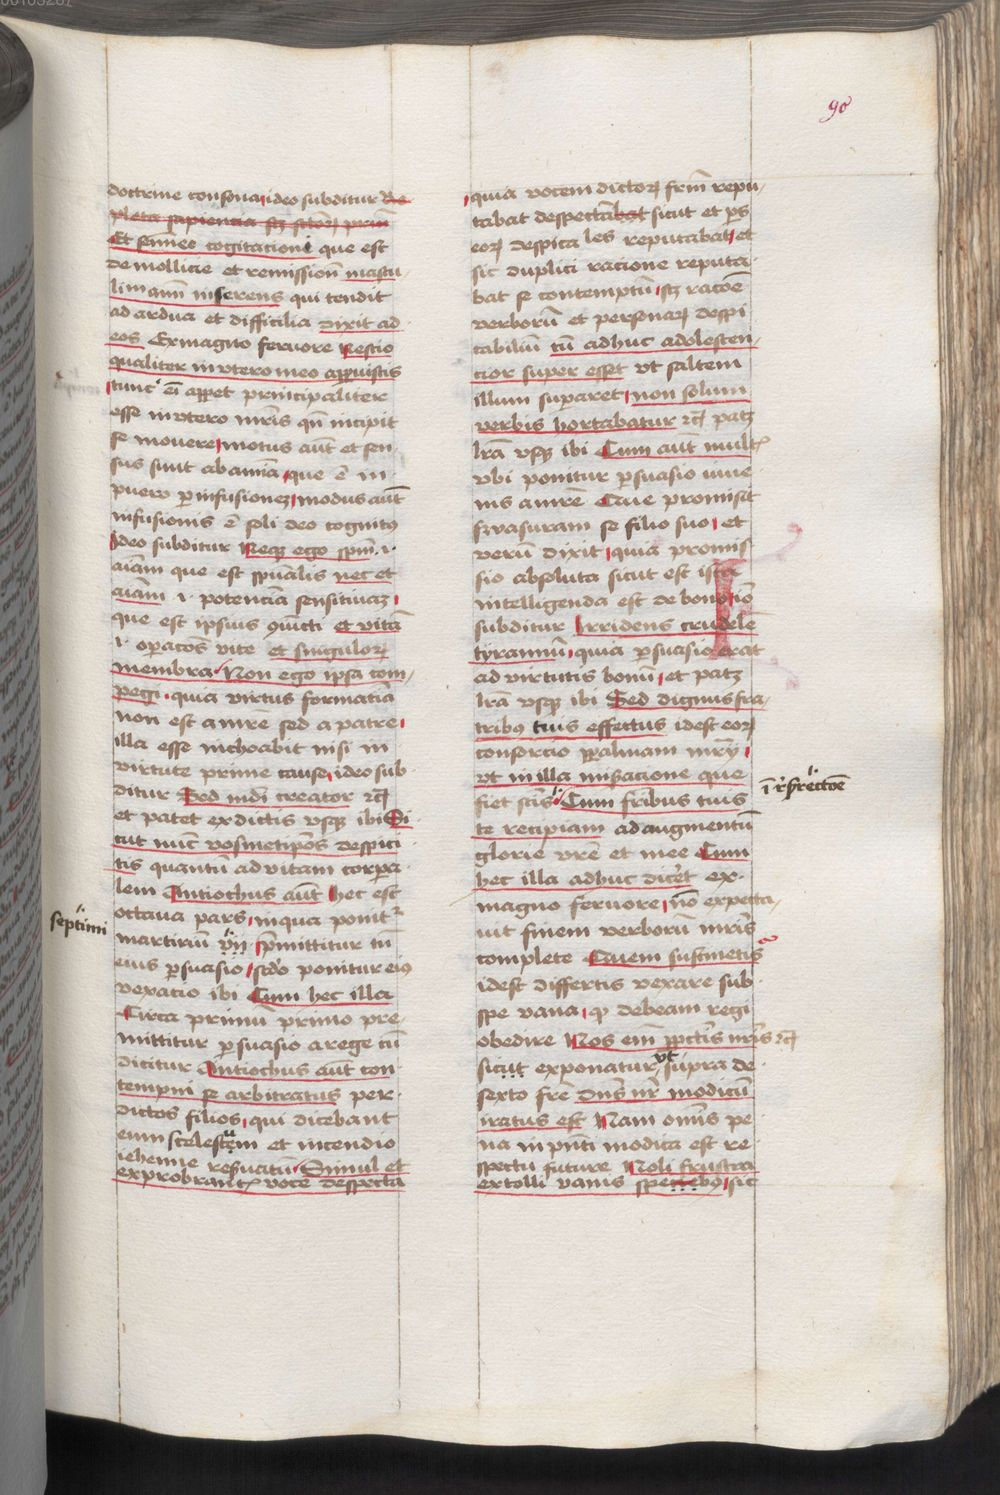 90
doctrine consona ideo subditur Re
pleta sapiencia scꝫ scḋoꝝ prim̄
Et femineo cogitationi que est
de mollicie et remissioni mascu
lim anim̄ inserens qui tendit
ad ardua et difficilia dixit ad
eos Ex magno fervore Nescio
qualiter in vtero meo apparuistis
tunc em̄ appet principaliter
esse in vtero mr̄is qn̄ incipit
se movere motus aūt et sen
sus sunt ab anima que ē in
puero p infusionez modus aūt
infusionis ē soli deo cognitꝰ
Ideo subditur Neqꝫ ego spm̄ .i.
aīam que est spūalis nec et
aīam .i. potencia sensitivaꝫ
que est ipsius ꝯiūcti et vitā
.i. opacōs vite et singuloꝝ
membra Non ego ipsa com
pegi quia virtus formatīa
non est a mr̄e sed a patre
illa esse inchoabit nisi in
virtute prime cause ideo sub
ditur Sed mdī creator ꝛcꝫ
et patet ex dictis vsqꝫ ibi Si
cut nunc vosmetipōs despici
tis quantū ad vitam corpa
lem Antiochus aūt hec est
octava pars in qua ponitᷣ
septimi
martiriū vij pmittitur tn̄
eius psuasio scḋo ponitur eiꝰ
vexatio ibi Cum hec illa
Circa primū primo pre
mittitur psuasio a rege cū
dicitur Antiochus aūt con
tempni se arbitratus per
dictos filios qui dicebant
eum scelestum et incendio
iehenne reservatū Simul et
exprobrantᷣ voce despecta
quia vocem dictoꝝ frm̄ repu
tabat despectabat sicut et ps
eoꝝ despicabiles reputabat et
sic duplici racione reputa
bat se contemptū scꝫ racōe
verborū et personaꝝ despi
cabiliū cū adhuc adolescen
cior super esset vt saltem
illum superaret non solum
verbis hortabatur ꝛcꝫ patꝫ
lrā vsqꝫ ibi Cum aūt multᷣ
vbi ponitur psuasio iuve
nis a mr̄e Que promisit
suasuram se filio suo et
verū dixit quia promis
sio absoluta sicut est ista
intelligenda est de bono iō
subditur Irridens crudelē
tyrannū quia psuasio erat
ad virtutis bonū et patꝫ
lrā vsqꝫ ibi Sed dignus fra
tribꝰ tuis effectus idest eoꝝ
consorcio p palmam mr̄ij
vt in illa miseracione que
ī r̄surrectōe
fiet scīs Cum fribus tuis
te recipiam ad augmentū
glorie vr̄e et mee Cum
hec illa adhuc dicēt ex
magno fervore nō expecta
vit finem verborū mr̄is
complete Quem sustinetis
idest differtis vexare sub
spe vana ꝙ debeam regi
obedire Nos em̄ p pctīs nr̄is ꝛcꝫ
sicut exponatur vt supra de
sexto fr̄e Dn̄s nr̄ modicū
iratus est Nam omīs pe
na in pn̄ti modica est re
spectu future Noli frustra
extolli vanis spebꝰ sic